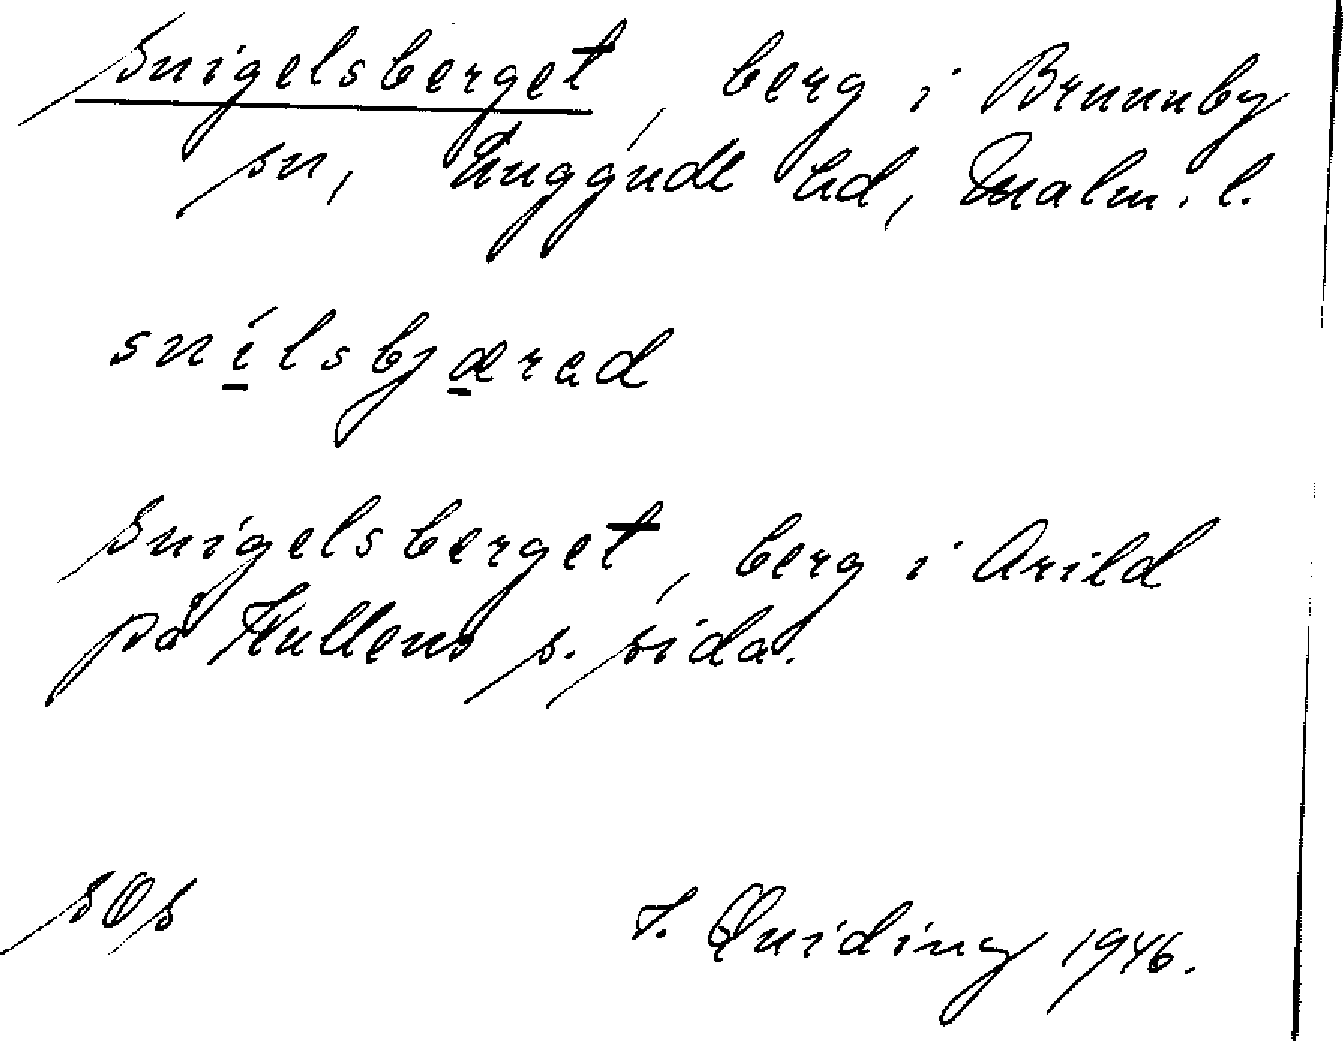 Snigelsberget, berg i Brunnby
sn, Luggude hd, Malm. l.
snilsbjærad
Snigelsberget, berg i Arild
på Kullens s. sida.
SOS
T. Quiding 1946.